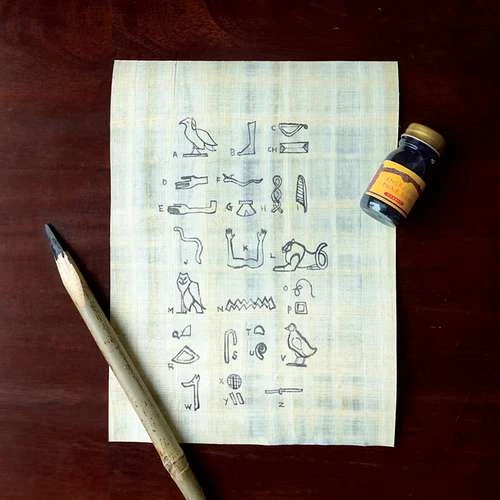 A B C
CH
D F
E G H
J K L
M N O
P
Q S T
R U V
W X
Y Z